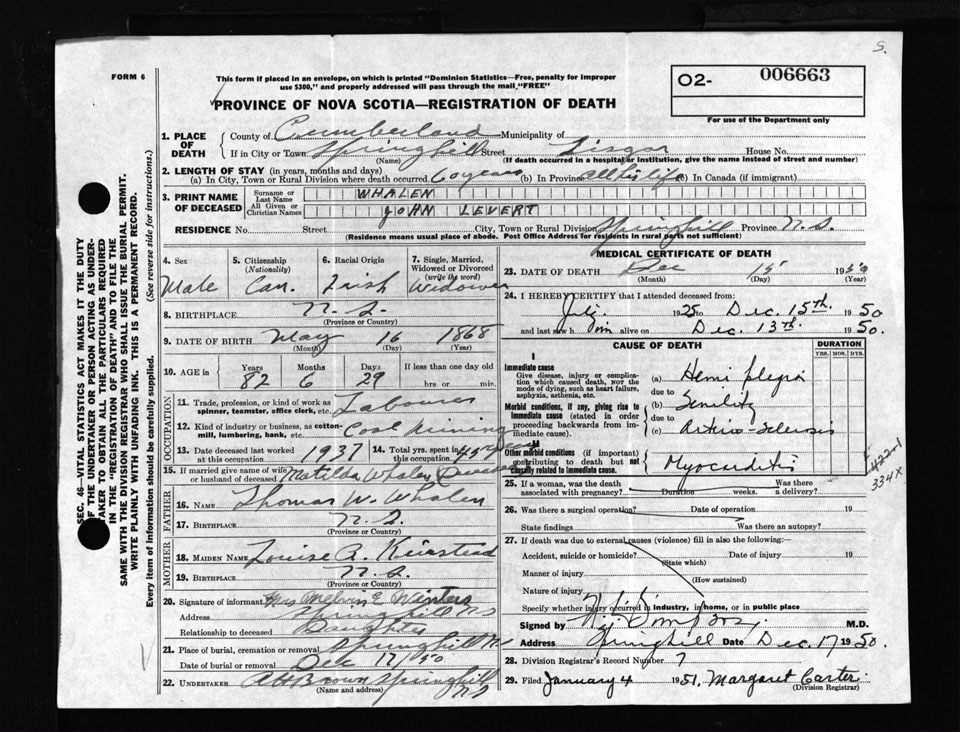 S.
FORM 6
This form if placed in an envelope, on which is printed "Dominion Statistics—Free, penalty for improper use $300," and properly addressed will pass through the mail "FREE"
O2- 006663
For use of the Department only
PROVINCE OF NOVA SCOTIA—REGISTRATION OF DEATH
1. PLACE OF DEATH County of Cumberland Municipality of
If in City or Town Springhill Street Lisgar House No.
(Name) (If death occurred in a hospital or institution, give the name instead of street and number)
2. LENGTH OF STAY (in years, months and days)
(a) In City, Town or Rural Division where death occurred 60 years (b) In Province all his life (c) In Canada (if immigrant)
3. PRINT NAME OF DECEASED Surname or Last Name WHALEN
All Given or Christian Names JOHN LEVERT
RESIDENCE No. Street City, Town or Rural Division Springhill Province N.S.
(Residence means usual place of abode. Post Office Address for residents in rural parts not sufficient)
4. Sex Male
5. Citizenship (Nationality) Can.
6. Racial Origin Irish
7. Single, Married, Widowed or Divorced (write the word) Widower
8. BIRTHPLACE N.S.
(Province or Country)
9. DATE OF BIRTH May 16 1868
(Month) (Day) (Year)
10. AGE in Years 82 Months 6 Days 29 If less than one day old hrs. or min.
OCCUPATION
11. Trade, profession, or kind of work as spinner, teamster, office clerk, etc. Labourer
12. Kind of industry or business, as cotton-mill, lumbering, bank, etc. Coal Mining
13. Date deceased last worked at this occupation 1937
14. Total yrs. spent in this occupation 45 years
15. If married give name of wife or husband of deceased Matilda Whalen
FATHER
16. Name Thomas W. Whalen
17. Birthplace N.S.
(Province or Country)
MOTHER
18. MAIDEN NAME Louise A. Keirstead
19. BIRTHPLACE N.S.
(Province or Country)
20. Signature of informant Mrs Melvin E Winters
Address Springhill N.S
Relationship to deceased Daughter
21. Place of burial, cremation or removal Springhill N.S
Date of burial or removal Dec 17/50
22. UNDERTAKER A H Brown Springhill NS
(Name and address)
MEDICAL CERTIFICATE OF DEATH
23. DATE OF DEATH Dec 15 1950
(Month) (Day) (Year)
24. I HEREBY CERTIFY that I attended deceased from:
1925 to Dec. 15th 1950
and last saw him alive on Dec. 13th. 1950.
CAUSE OF DEATH
DURATION
YRS. MOS. DYS.
I
Immediate cause
Give disease, injury or complication which caused death, NOT the mode of dying, such as heart failure, asphyxia, asthenia, etc.
(a) Hemiplegia
due to
Morbid conditions, if any, giving rise to immediate cause (stated in order proceeding backwards from immediate cause).
(b) Senility
due to
(c) Arterio-Sclerosis
II
Other morbid conditions (if important) contributing to death but not causally related to immediate cause.
Myocarditis
4221
334X
25. If a woman, was the death associated with pregnancy? Duration weeks. Was there a delivery?
26. Was there a surgical operation? Date of operation 19
State findings Was there an autopsy?
27. If death was due to external causes (violence) fill in also the following:—
Accident, suicide or homicide? Date of injury 19
(State which)
Manner of injury
(How sustained)
Nature of injury
Specify whether injury occurred in industry, in home, or in public place
Signed by M.D.
Address Springhill Date Dec. 17 1950
28. Division Registrar's Record Number 7
29. Filed January 4 1951. Margaret Carter
(Division Registrar)
SEC. 46—VITAL STATISTICS ACT MAKES IT THE DUTY OF THE UNDERTAKER OR PERSON ACTING AS UNDERTAKER TO OBTAIN ALL THE PARTICULARS REQUIRED IN THE "REGISTRATION OF DEATH" AND TO FILE THE SAME WITH THE DIVISION REGISTRAR WHO SHALL ISSUE THE BURIAL PERMIT.
WRITE PLAINLY WITH UNFADING INK. THIS IS A PERMANENT RECORD.
Every item of information should be carefully supplied. (See reverse side for instructions.)